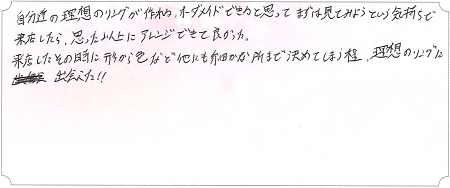 自分達の理想のリングが作れる、オーダーメイドできると思って まずは見てみようという気持ちで
来店したら、思った以上にアレンジできて良かった。
来店したその時に 形から色など他にも細かな所まで決めてしまう程、理想のリングに
出会えた!!